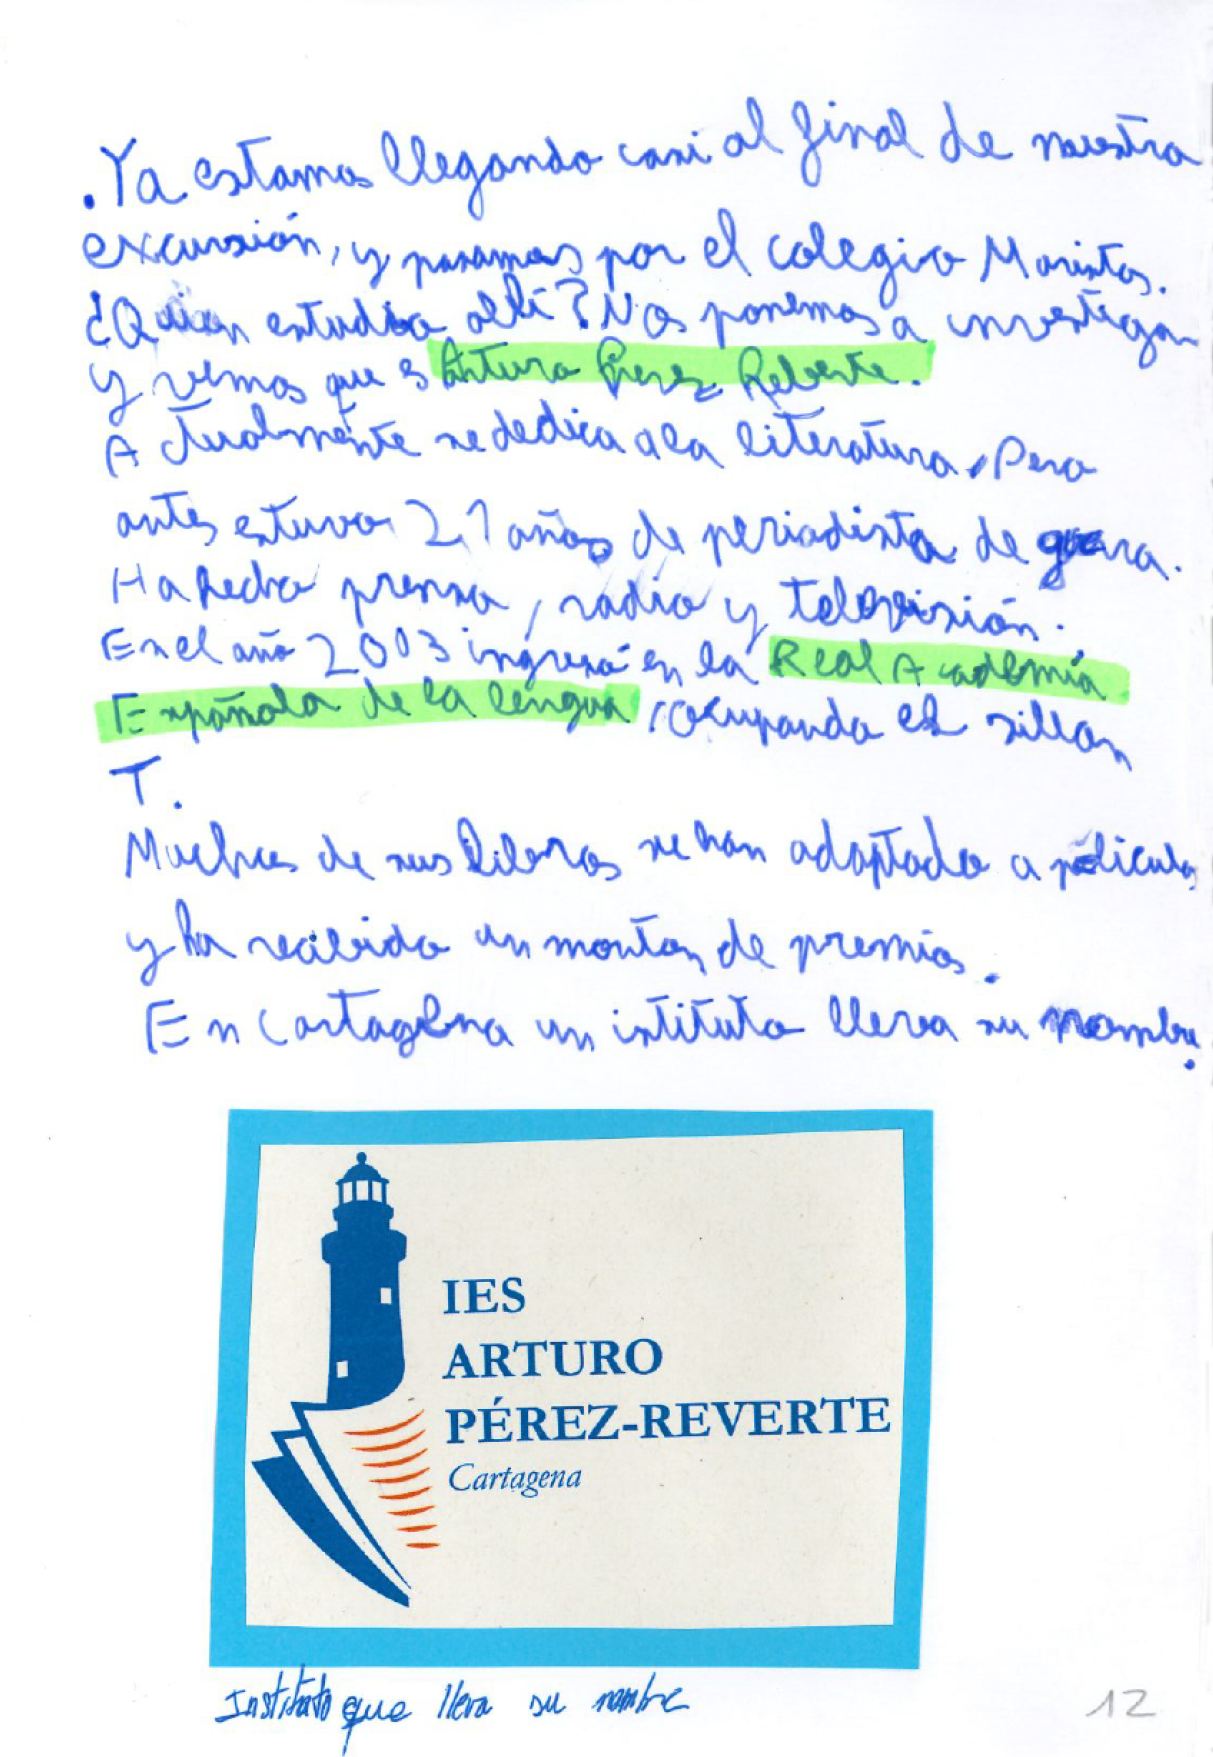 .Ya estamos llegando casi al final de nuestra
excursión, y pasamos por el colegio Maristas.
¿Quien estudia allí? Nos ponemos a investigar
y vemos que es Arturo Perez Reberte.
Actualmente se dedica a la literatura. Pero
antes estuvo 21 años de periodista de guerra.
Ha hecho prensa, radio y televisión.
En el año 2003 ingresó en la Real Academia
Española de la lengua, ocupando el sillon
T.
Muchos de sus libros se han adaptado a peliculas
y ha recibido un monton de premios.
En Cartagena un intituto lleva su nombre.
IES
ARTURO
PÉREZ-REVERTE
Cartagena
Instituto que lleva su nombre
12